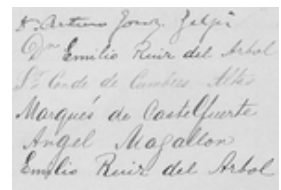 D. Arturo Gomez Gelpi
Dn Emilio Ruiz del Arbol
Sr. Conde de Cumbres Altas
Marqués de Castelfuerte
Angel Magallon
Emilio Ruiz del Arbol